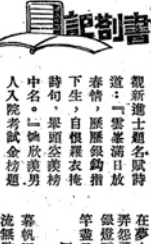 書劄記
觀新進士題名賦詩
道:『雲峯滿目放
春情,歷歷銀鈎指
下生,自恨羅衣掩
詩句,舉頭空羨榜
中名。』她欣羨男
人入院考試金榜題
在夢
弄怨
銀燈
竿盡
暮帆
流無